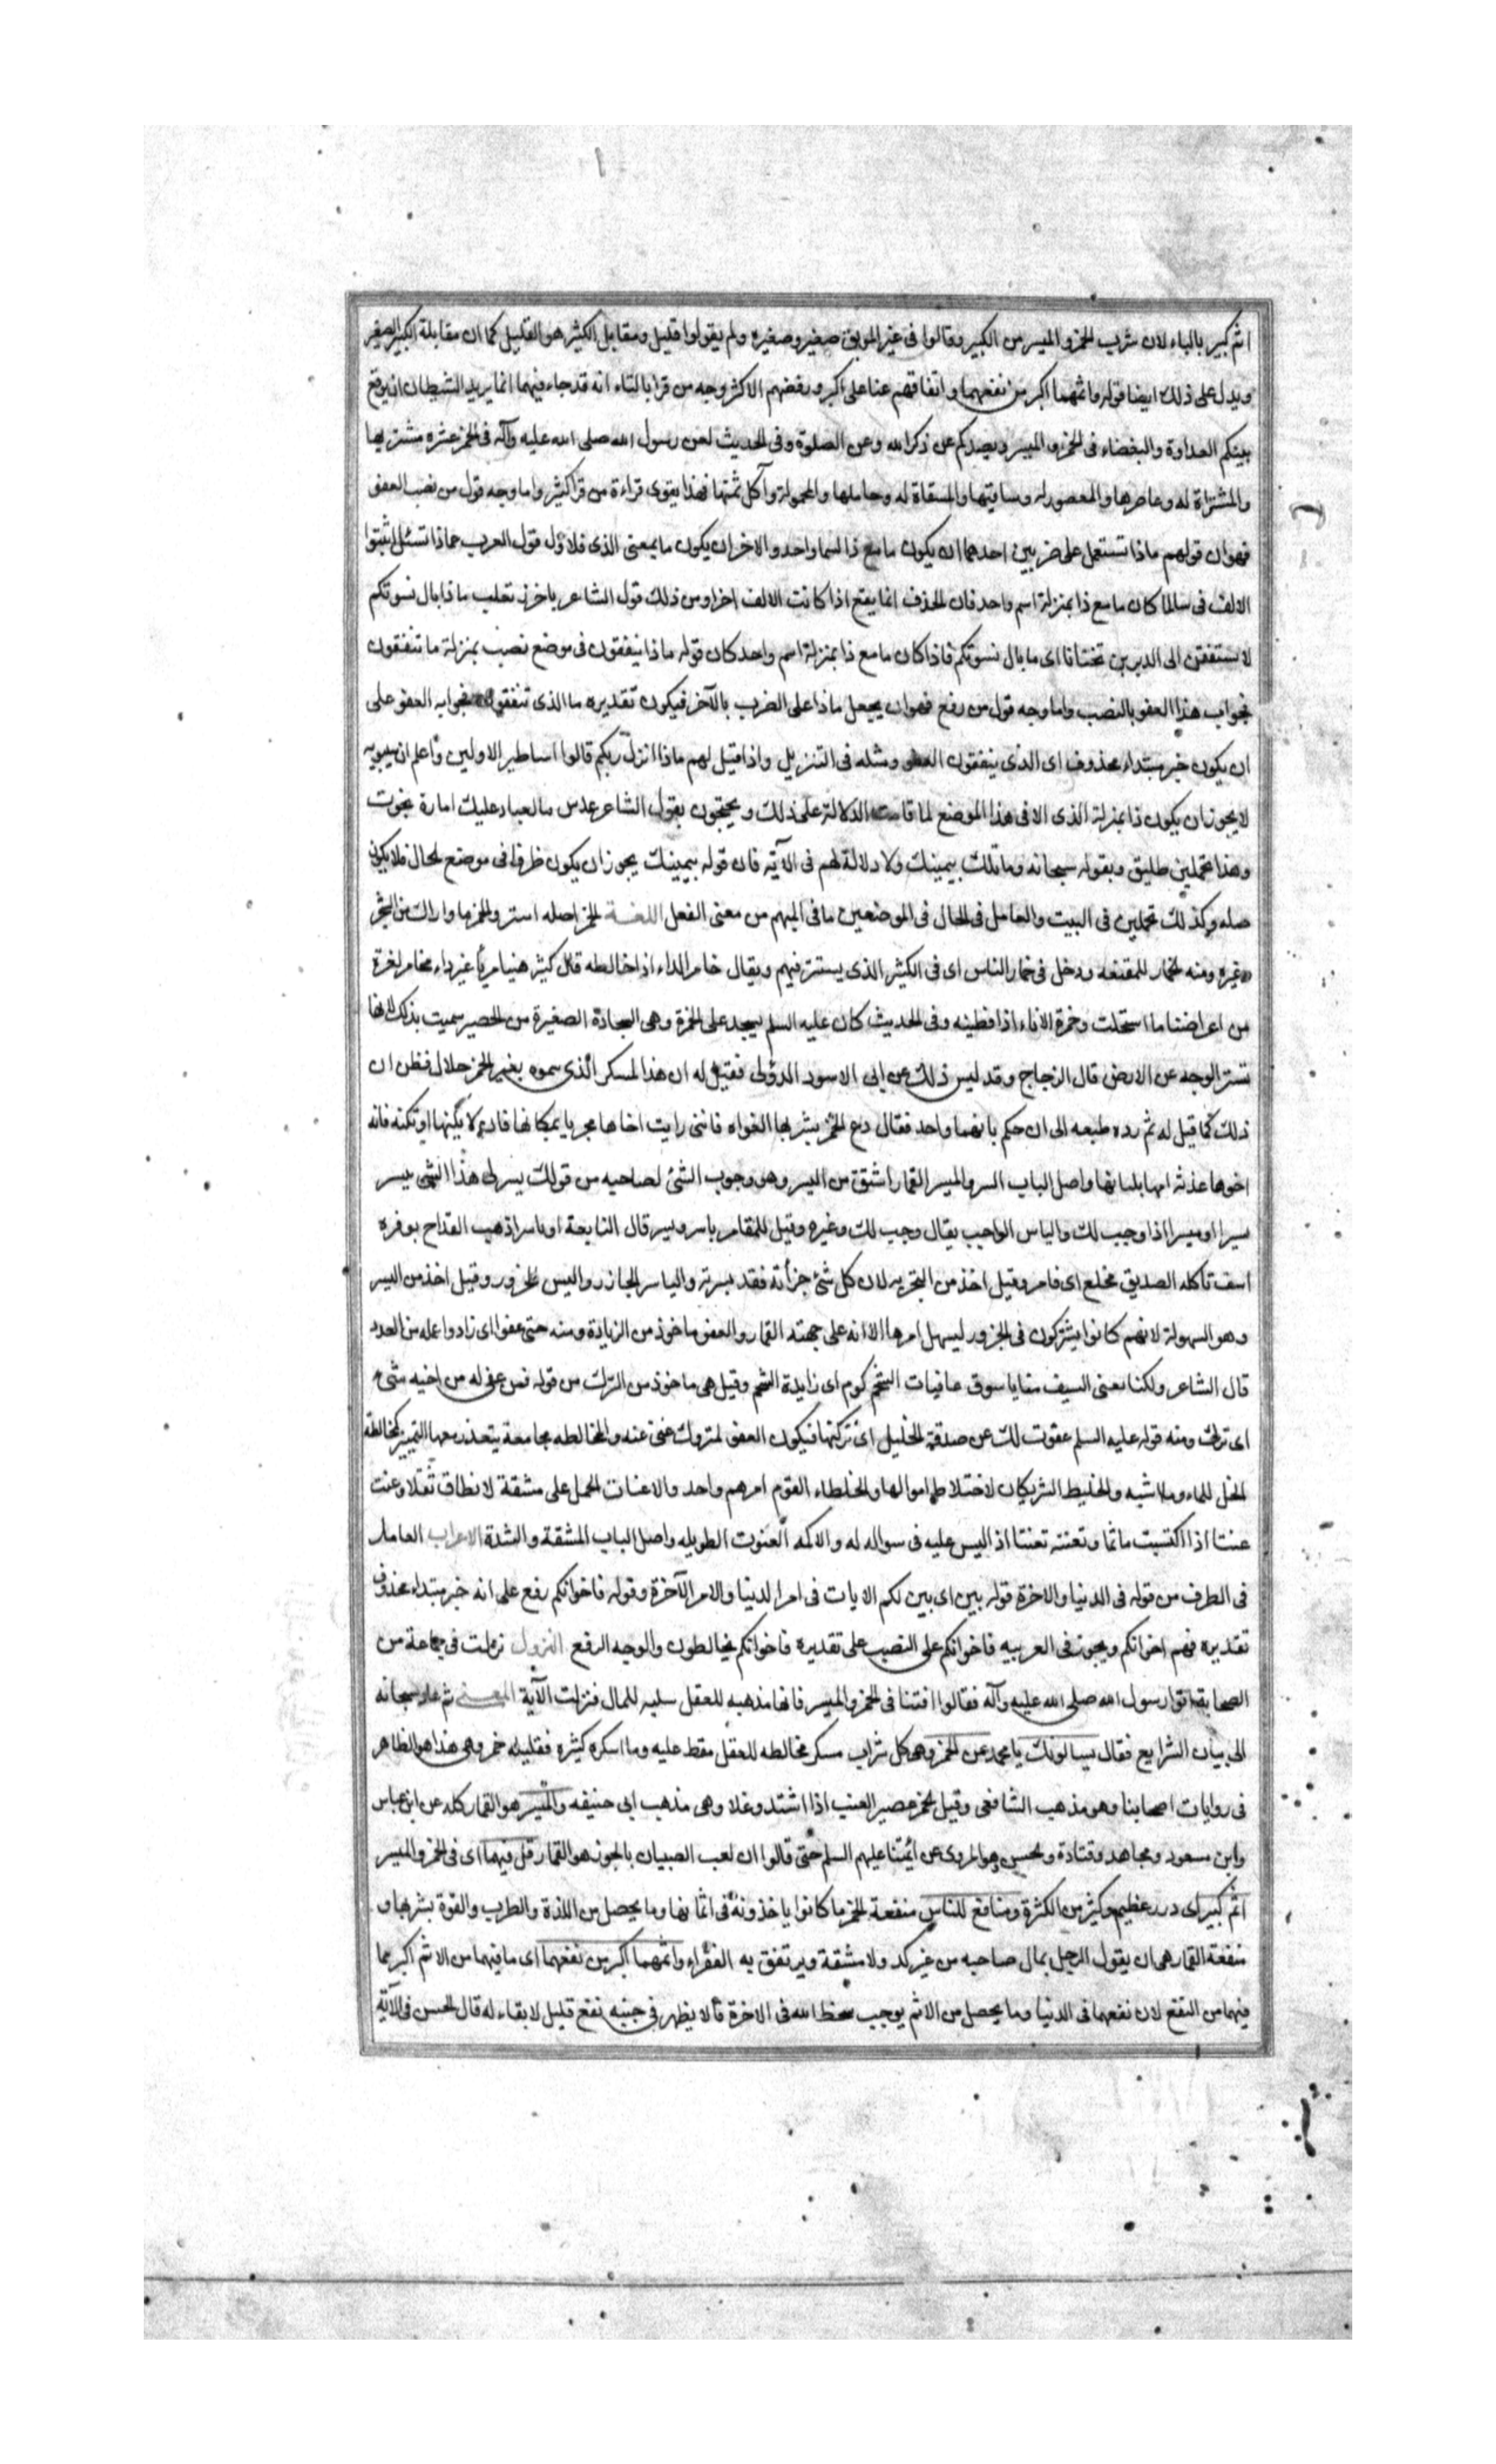 اثم كبير بالباء لان شرب الخمر و الميسر من الكبير وقالوا فى غير الموبق صغير وصغيره ولم يقولوا قليل ومقابل الكثير هو القليل كما ان مقابلة الكبير الصغير
ويدل على ذلك ايضا قوله واثمهما اكبر من نفعهما و اتفاقهم عنا على اكبر و رفضهم الاكثر وجه من قرا بالثاء انه قد جاء فيهما انما يريد الشيطان ان يوقع
بينكم العداوة والبغضاء فى الخمر و الميسر ويصدكم عن ذكر الله وعن الصلوة وفى الحديث لعن رسول الله صلى الله عليه وآله فى الخمر عشره مشتريها
والمشتراة له وعاصرها والمعصور له وساقيتها والمسقاة له وحاملها والمحمولة وآكل ثمنها فهذا يقوى قراءة من قرا كثير واما وجه قول من نصب العفو
فهو ان قولهم ماذا تستعمل على ضربين احدهما ان يكون ما مع ذا اسما واحد و الاخر ان يكون ما بمعنى الذى فلاول قول العرب عماذا تسئل اثبتوا
الالف فى سالما كان ما مع ذا بمنزلة اسم واحد فان الحذف انما يقع اذا كانت الالف اخرا ومن ذلك قول الشاعر يا خزر تغلب ماذا بال نسوتكم
لا يستفقن الى الديرين تحنانا اى ما بال نسوتكم فاذا كان ما مع ذا بمنزلة اسم واحد كان قوله ماذا ينفقون فى موضع نصب بمنزلة ما تنفقون
فجواب هذا العفو بالنصب واما وجه قول من رفع فهو ان يجعل ماذا على الضرب بالآخر فيكون تقديره ما الذى تنفقون فجوابه العفو على
ان يكون خبر مبتداء محذوف اى الذى ينفقون العفو ومثله فى التنزيل واذا قيل لهم ماذا انزل ربكم قالوا اساطير الاولين واعلم ان سيبويه
لا يجوز ان يكون ذا بمنزلة الذى الا فى هذا الموضع لما قامت الدلالة على ذلك و يحتجون بقول الشاعر عدس ما لعباد عليك امارة نجوت
وهذا تحملين طليق وبقوله سبحانه وما تلك بيمينك ولا دلالة لهم فى الآية فان قوله بيمينك يجوز ان يكون ظرفا فى موضع الحال فلا يكون
صله وكذلك تحملين فى البيت والعامل فى الحال فى الموضعين ما فى المبهم من معنى الفعل اللغة الخمر اصله الستر والخمر ما واراك من الشجر
وغيره ومنه الخمار للمقنعه ودخل فى خمار الناس اى فى الكثير الذى يستتر فيهم ويقال خامر الداء اذا خالطه قال كثير هنيئا مريأ غير داء مخامر لغرة
من اعراضنا ما استحلت وخمرة الاناء اذا غطيته وفى الحديث كان عليه السلم يسجد على الخمرة وهى السجادة الصغيرة من الحصير سميت بذلك لانها
تستر الوجه عن الارض قال الزجاج وقد ليس ذلك عن ابى الاسود الدؤلى فقيل له ان هذا المسكر الذى سموه بغير الخمر حلال فظن ان
ذلك كما قيل له ثم رده طبعه الى ان حكم بانهما واحد فقال دع الخمر يشربها الغواه فاننى رايت اخاها مجريا بمكانها فان لا يكنها او تكنه فانه
اخوها غذته امها بلبانها واصل الباب الستر والميسر القمار اشتق من اليسر وهو وجوب الشئ لصاحبه من قولك يسر لى هذا الشئ ييسر
يسرا او ميسرا اذا وجب لك والياسر الواجب يقال وجب لك وغيره وقيل للمقامر ياسر ويسر قال النابغة او ياسر اذهب القداح بوفره
اسف تاكله الصديق مخلع اى قامر وقيل اخذ من التجزيه لان كل شئ جزأته فقد يسرته والياسر الجازر واليس الجزور وقيل اخذ من اليسر
وهو السهولة لانهم كانوا يشتركون فى الجزور ليسهل امرها الا انه على جهته القمار و العفو ماخوذ من الزيادة ومنه حتى عفوا اى زادوا عمله من العدد
قال الشاعر ولكنا نعض السيف منا باسوق عافيات الشحم كوم اى زايدة الشحم وقيل هى ماخوذ من الترك من قوله فمن عفى له من اخيه شئ
اى ترك ومنه قوله عليه السلم عفوت لك عن صدقة الخيل اى تركتها فيكون العفو المتروك غنى عنه والمخالطه مجامعة يتعذر معها التمييز كمخالطة
الخل للماء وما اشبه والخليط الشريكان لاختلاط اموالها والخلطاء القوم امرهم واحد والاعنات الحمل على مشقة لا تطاق ثقلا وعنت
عنتا اذا اكتسبت ماثما وتعنته تعنتا اذ اليس عليه فى سواله له والاكمه العنوت الطويله واصل الباب المشقة والشدة الاعراب العامل
فى الظرف من قوله فى الدنيا والاخرة قوله يبين اى يبين لكم الايات فى امر الدنيا والامر الآخرة وقوله فاخوانكم رفع على انه خبر مبتداء محذوف
تقديره فهم اخوانكم ويجوز فى العربيه فاخوانكم على النصب على تقديره فاخوانكم يخالطون والوجه الرفع النزول نزلت فى جماعة من
الصحابة اتوا رسول الله صلى الله عليه وآله فقالوا افتنا فى الخمر والميسر فانها مذهبه للعقل سلبه للمال فنزلت الآية المعنى ثم عاد سبحانه
الى بيان الشرايع فقال يسالونك يا محمد عن الخمر وهى كل شراب مسكر مخالطه للعقل مغط عليه وما اسكره كثيره فقليله خمر وهى هذا هو الظاهر
فى روايات اصحابنا وهو مذهب الشافعى وقيل الخمر عصير العنب اذا اشتد وغلا وهى مذهب ابى حنيفه والميسر هو القمار كله عن ابن عباس
وابن مسعود ومجاهد وقتادة والحسن وهو المروى عن ائمتنا عليهم السلم حتى قالوا ان لعب الصبيان بالجوز هو القمار قل فيهما اى فى الخمر والميسر
اثم كبير اى وزر عظيم وكثير من الكثرة ومنافع للناس منفعة الخمر ما كانوا ياخذونه فى اثمانها وما يحصل من اللذة والطرب والقوة بشربها و
منفعة القمار هى ان يقول الرجل بمال صاحبه من غير كد ولا مشقة ويرتفق به الفقراء واثمهما اكبر من نفعهما اى ما فيهما من الاثم اكبر مما
فيهما من النفع لان نفعهما فى الدنيا وما يحصل من الاثم يوجب سخط الله فى الاخرة فلا يظهر فى جنبه نفع قليل لا بقاء له قال الحسن فى الآية